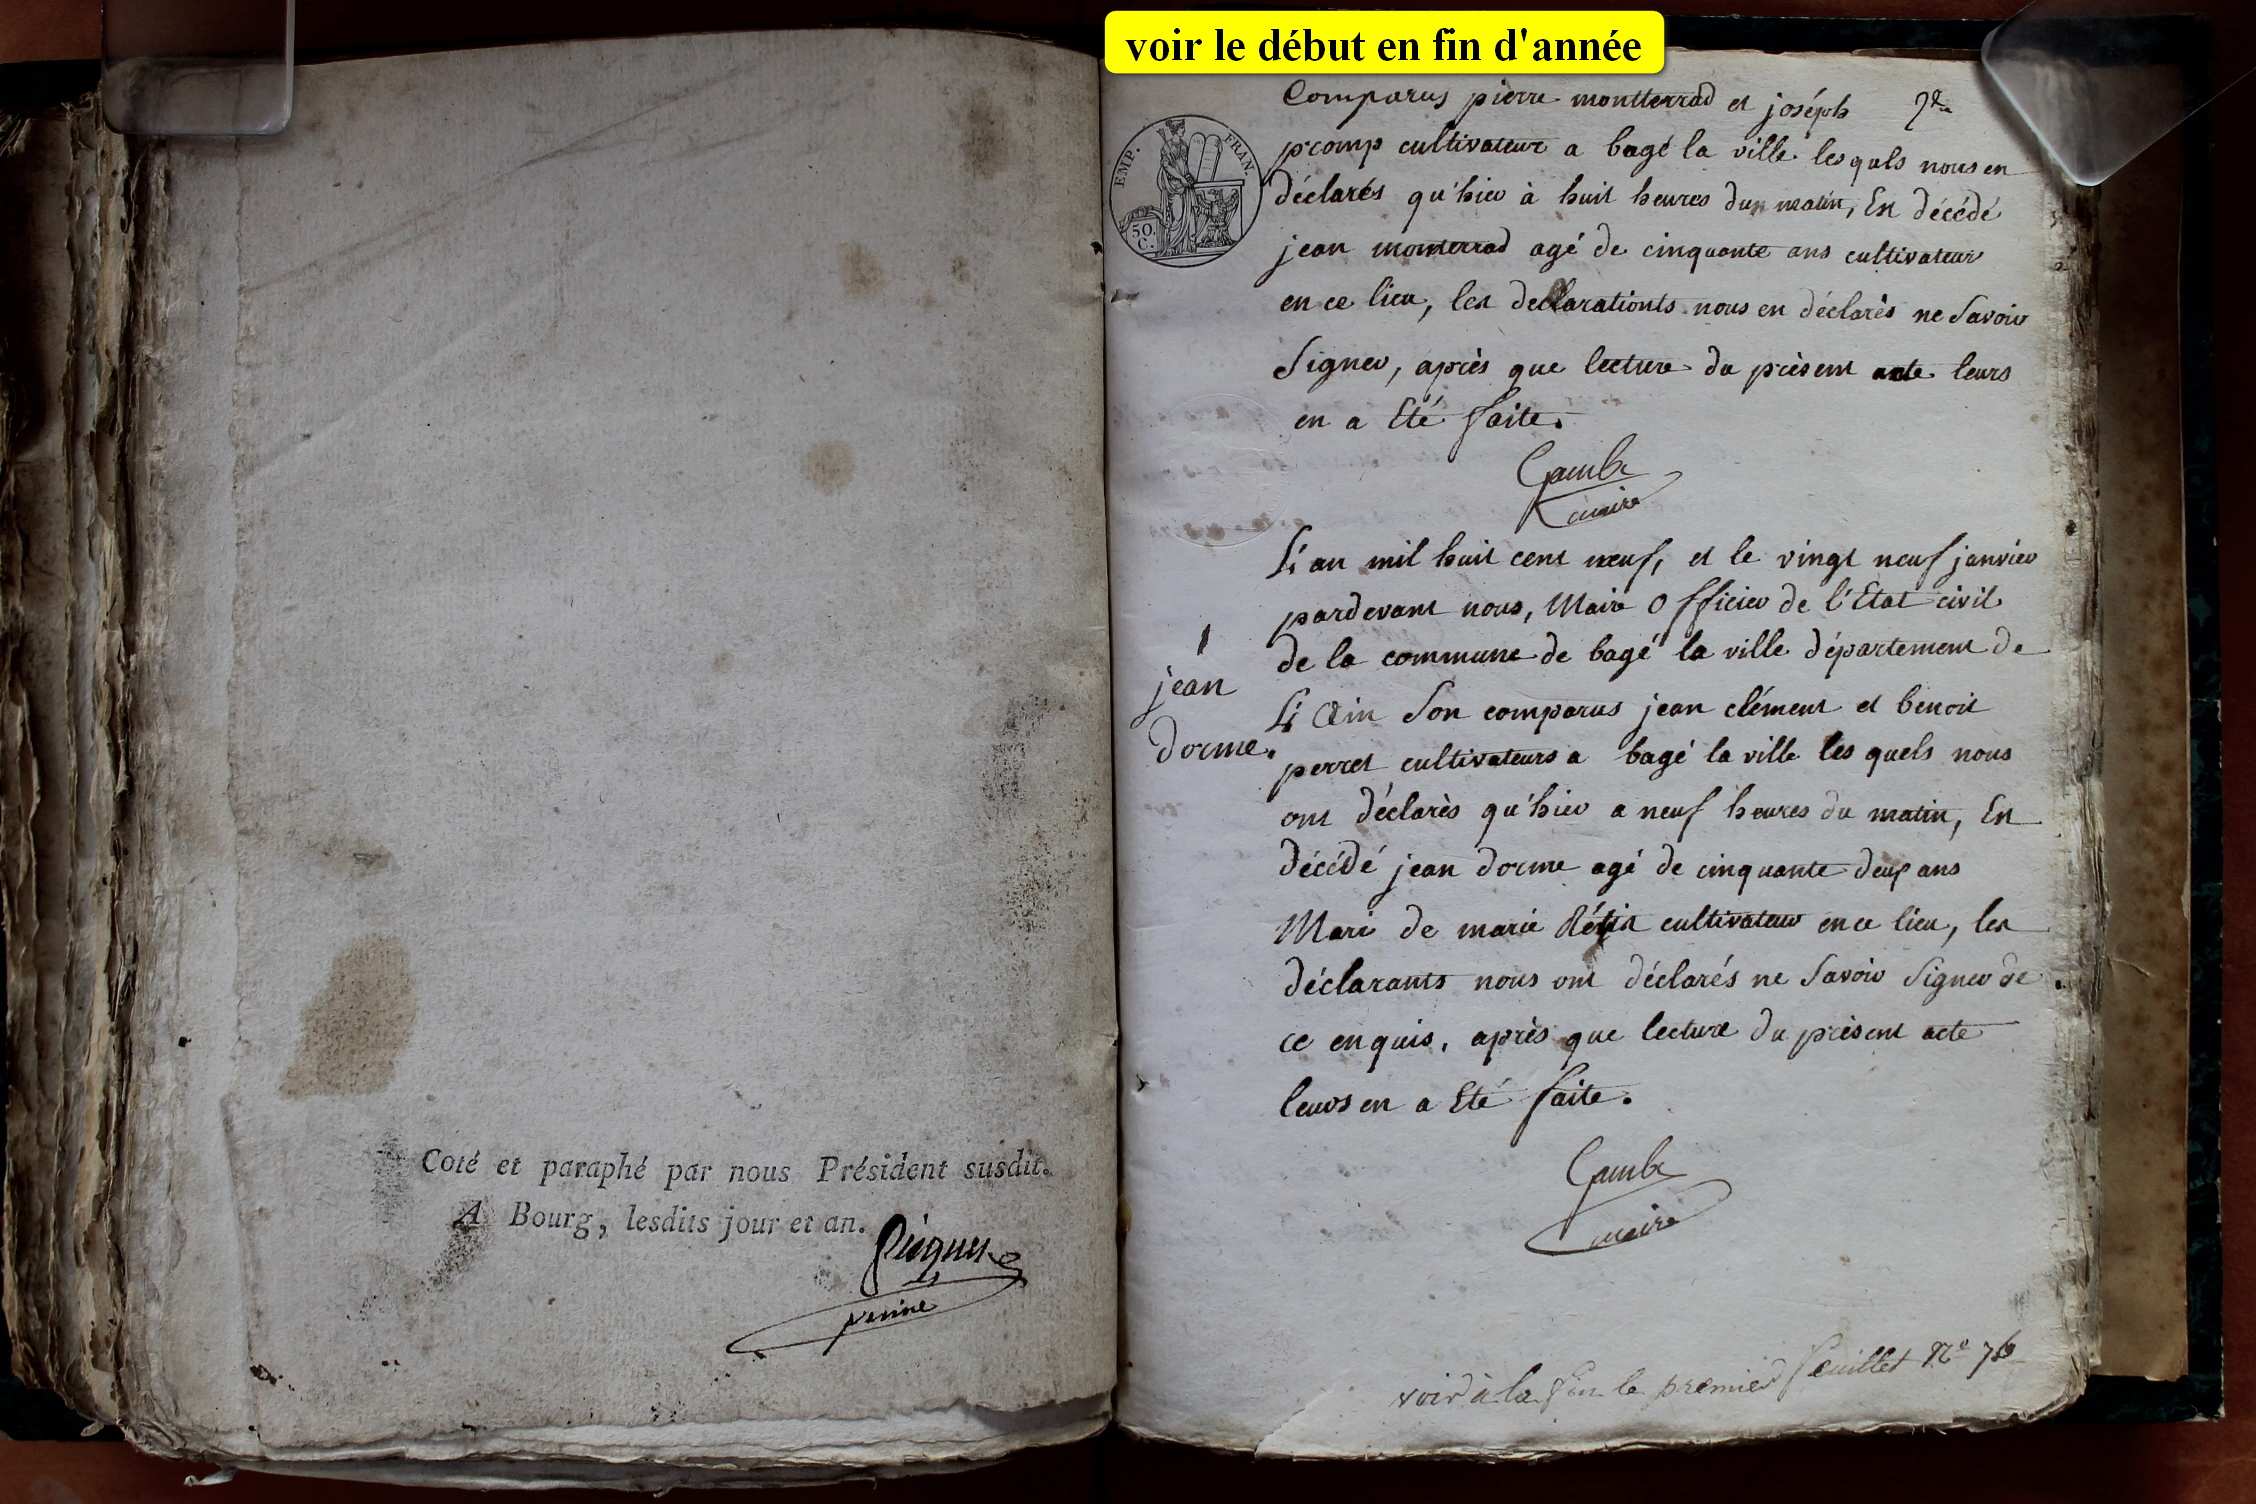 voir le début en fin d'année
Coté et paraphé par nous Président susdit.
A Bourg, lesdits jour et an.
EMP. FRAN.
50.
C.
Comparus pierre montterrad et joséph
pcomp cultivateur a bagé la ville lesquls nous en
déclarés qu'hier à huit heures dun matin, Est décédé
jean monterrad agé de cinquante ans cultivateur
en ce lieu, les declarationts nous en déclarés ne Savoir
Signer, après que lecture du présent acte leurs
en a Eté faite.
Gambe
maire
L'an mil huit cent neuf, et le vingt neuf janvier
pardevant nous, Maire Officier de l'Etat civil
de la commune de bagé la ville département de
L'Ain Son comparus jean clément et benoit
perret cultivateurs a bagé la ville les quels nous
ont déclarès qu'hier a neuf heures du matin, Est
décédé jean dorme agé de cinquante deux ans
Mari de marie cultivateur en ce lieu, les
déclarants nous ont déclarés ne Savoir Signer de
ce enquis, après que lecture du présent acte
leurs en a Eté faite.
jean
dorme.
Gambe
maire
voir à la fin le premier feuillet N° 76